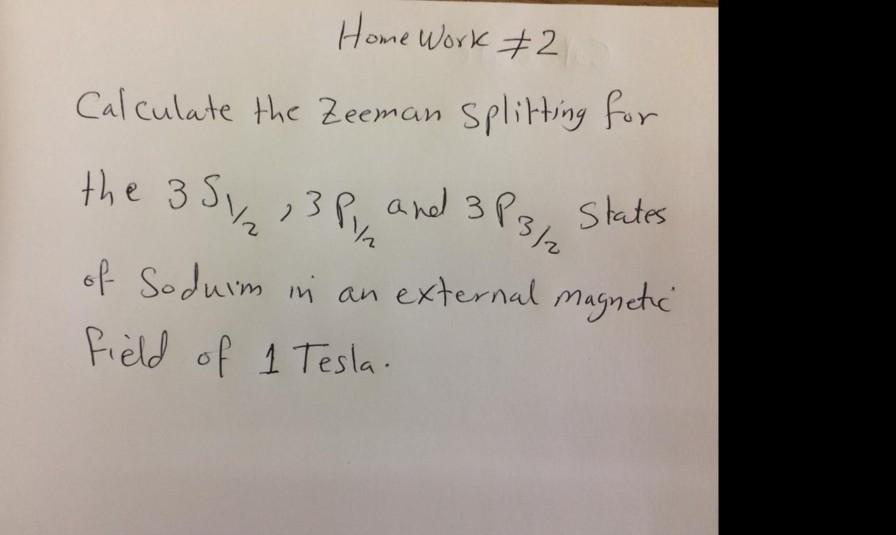 Home Work #2
Calculate the Zeeman splitting for
the 3S1/2, 3P1/2 and 3P3/2 States
of Soduim in an external magnetic
field of 1 Tesla.